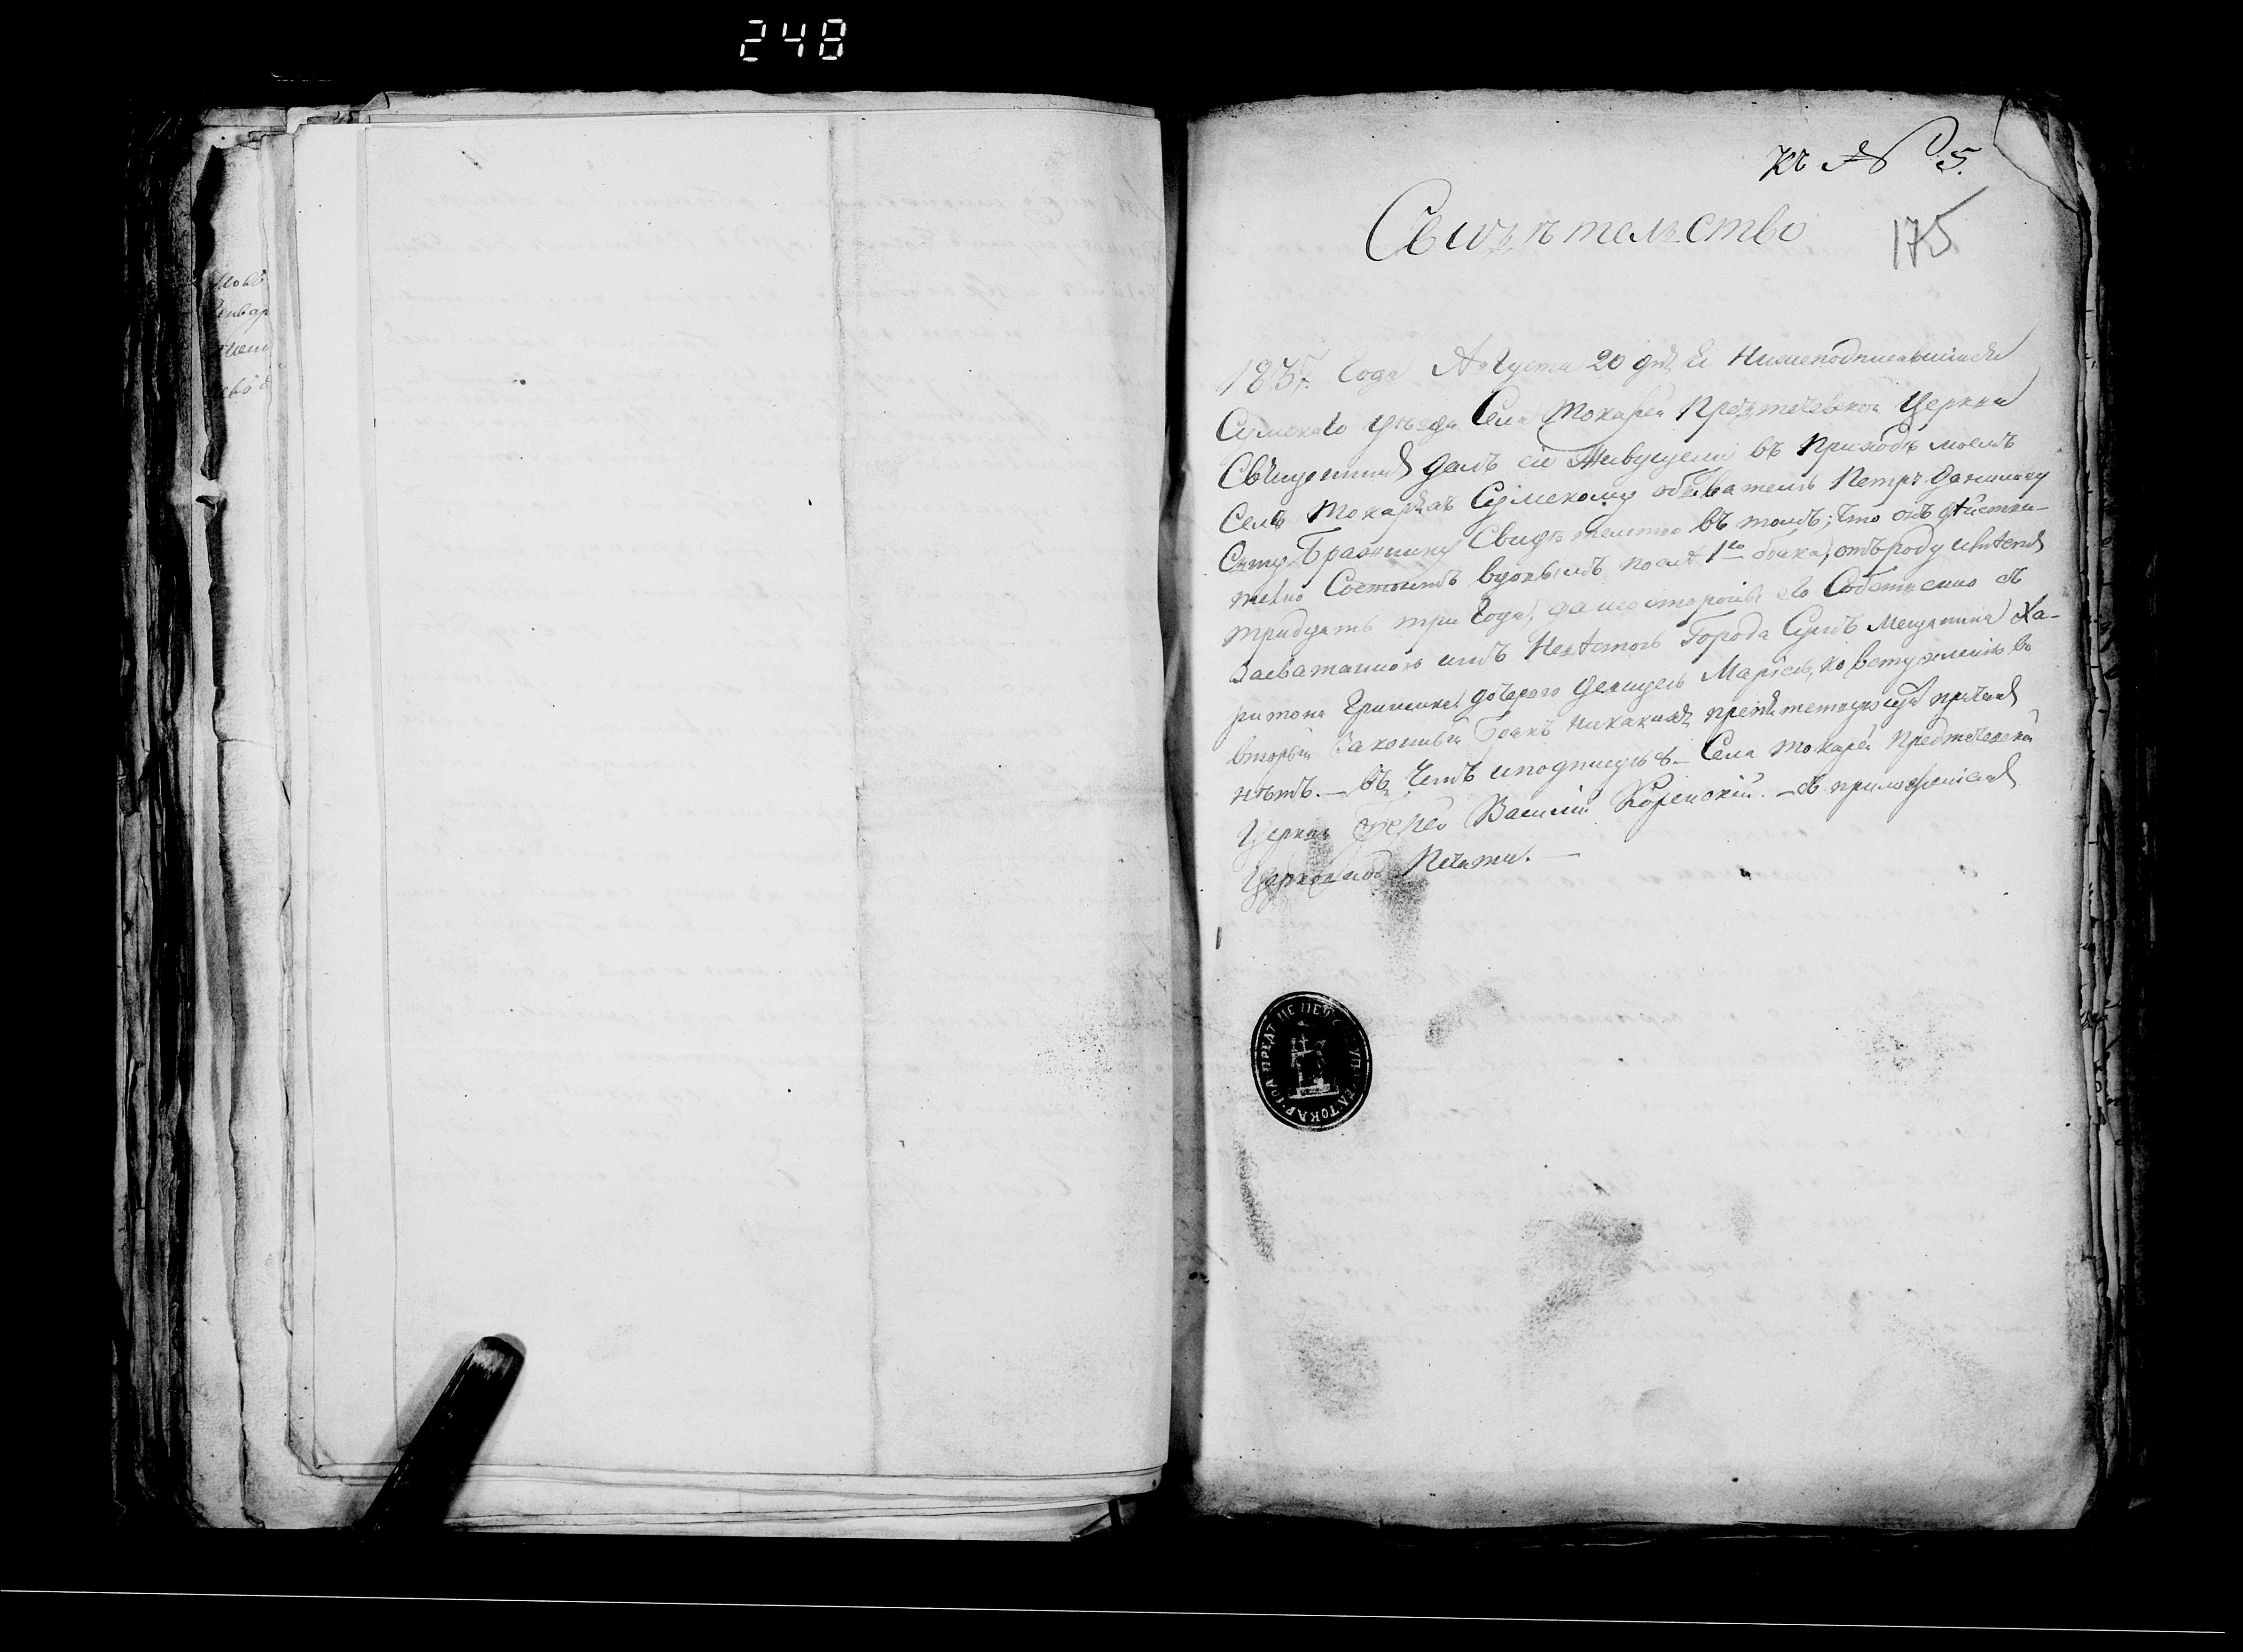 248
къ № 5.
Свидѣтелство
175
1837. Года Августа 20 дня Я Нижеподписавшійся
Сумскаго уѣзда Села Токарей Предтечевской Церкви
Священникъ далъ сіе живущему въ Приходѣ моемъ
Селѣ Токаряхъ Сумскому обывателю Петру Данилову
Сыну Бражнику Свидѣтелство въ томъ, что онъ дѣйстви-
телно Состоитъ вдовымъ послѣ 1го брака, отъ роду имѣетъ
тридцать три Года, да и со стороны его Собственно съ
Засватанною имъ Невѣстою Города Сумъ Мещанина Ха-
ритона дочерью девицею Маріею, ко вступленію во
вторый Законный Бракъ никакихъ препятствующихъ причинъ
нѣтъ. — въ чемъ и подпишусь — Села Токарей Предтечевской
Церкви Іерей Василій — съ приложеніемъ
Церковной Печати. —